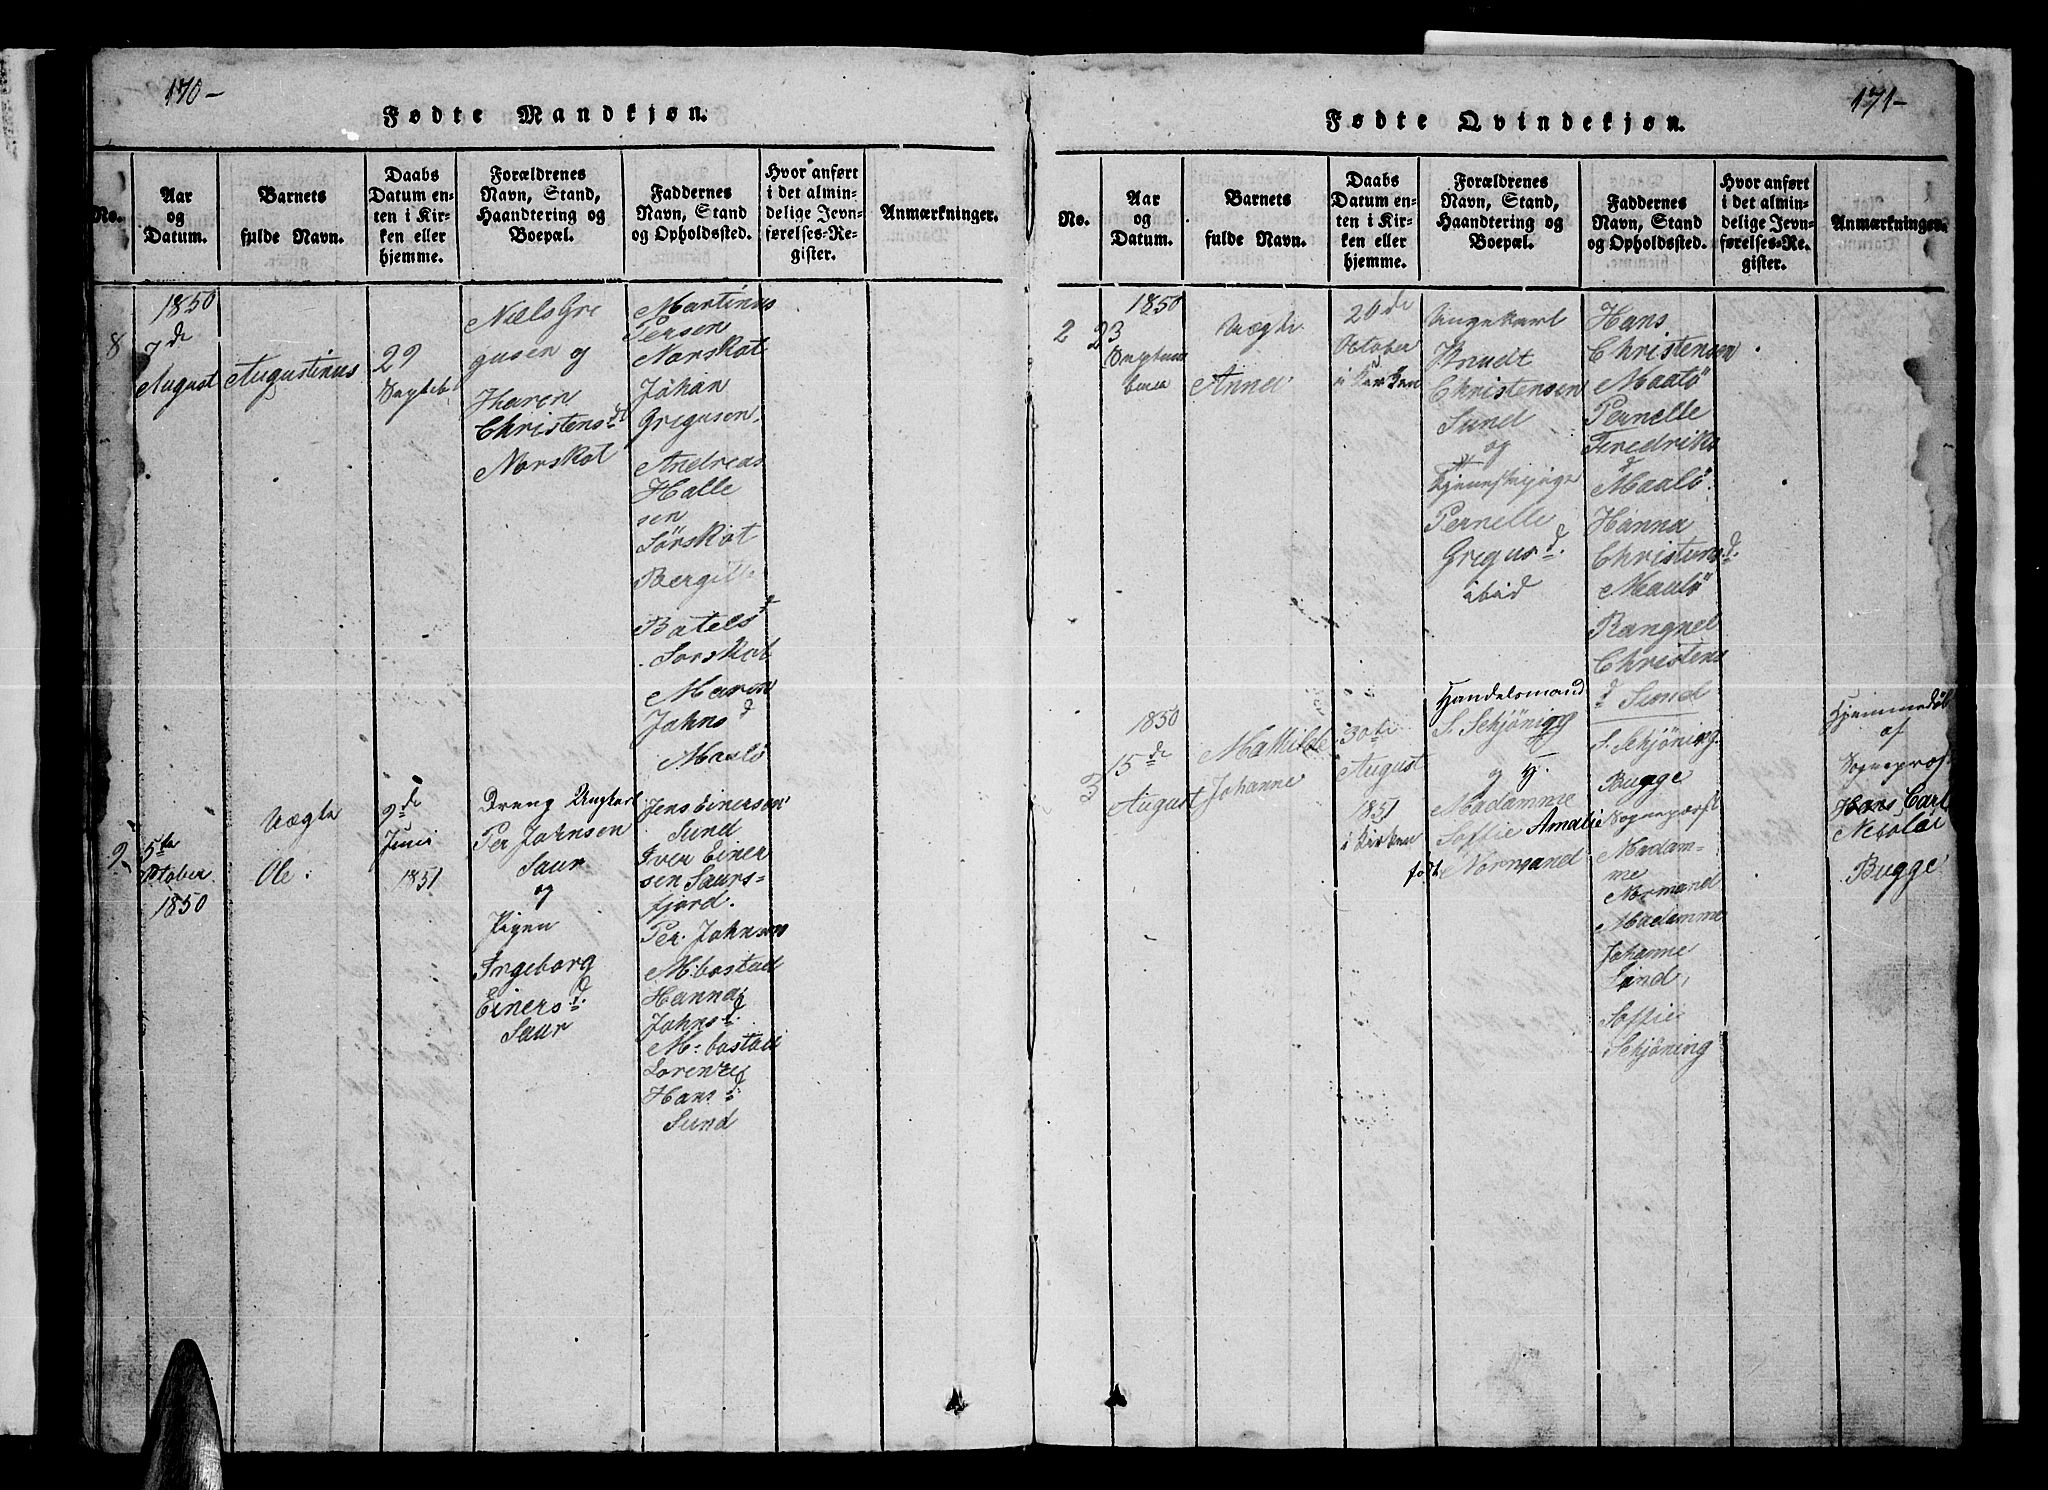 170-
Fødte Mandkjøn.
No.
Aar
og
Datum.
Barnets
fulde Navn.
Daabs
Datum en-
ten i Kir-
ken eller
hjemme.
Forældrenes
Navn, Stand,
Haandtering og
Boepæl.
Faddernes
Navn, Stand
og Opholdssted.
Hvor anført
i det almin-
delige Jevn-
førelses-Re-
gister.
Anmærkninger.
8
1850
7de
August
Augustinus
29
Septeb
Niels Gre
gusen og
Haren
Christensd
Norskot
Martinus
Persen
Norskot
Johan
Gregusen
Andreas
Halle
sen
Sørskot
Bergitte
Batelsd
Sorskot
Maren
Johnsd
Maalö
9
5te
October
1850
Uægte
Ole
2de
Juni
1851
Dreng Ungkarl
Per Johnsen
Saur
og
Pigen
Ingeborg
Einersd.
Saur
Jens Einersen
Sund
Iver Einer
sen Saurs-
fjord.
Per. Johnsen
M:bostad
Hanna
Johnsd.
M:bostad
Lorentze
Hansd
Sund
171-
Fødte Qvindekjøn.
No.
Aar
og
Datum.
Barnets
fulde Navn.
Daabs
Datum en-
ten i Kir-
ken eller
hjemme.
Forældrenes
Navn, Stand,
Haandtering og
Boepæl.
Faddernes
Navn, Stand
og Opholdssted.
Hvor anført
i det almin-
delige Jevn-
førelses-Re-
gister.
Anmærkninger.
2
1850
23
Septem
ber
Uægte
Anne
20de
October
i Kirken
Ungekarl
Brudt
Christensen
Sund
og
Pernelle
Gregusd.
ibid
Hans
Christensen
Maalö
Pernelle
Fredriks
d
Maalö
Hanna
Christensd.
Maalö
Rangnel
Christens
d Sund
3
1850
15de
August
Mathilde
Johanne
30te
August
1851
i Kirken
Handelsmand
S. Schjöning
og H.
Madamme
Soffie Amalie
født Normand
S. Schjöning
Bugge
Sogneprest
Madam-
me
Normand
Madamme
Johanne
Lind,
Soffie
Schjöning
Hjemmedöb
af
Sogneprest
Hans Carl
Nicolai
Bugge